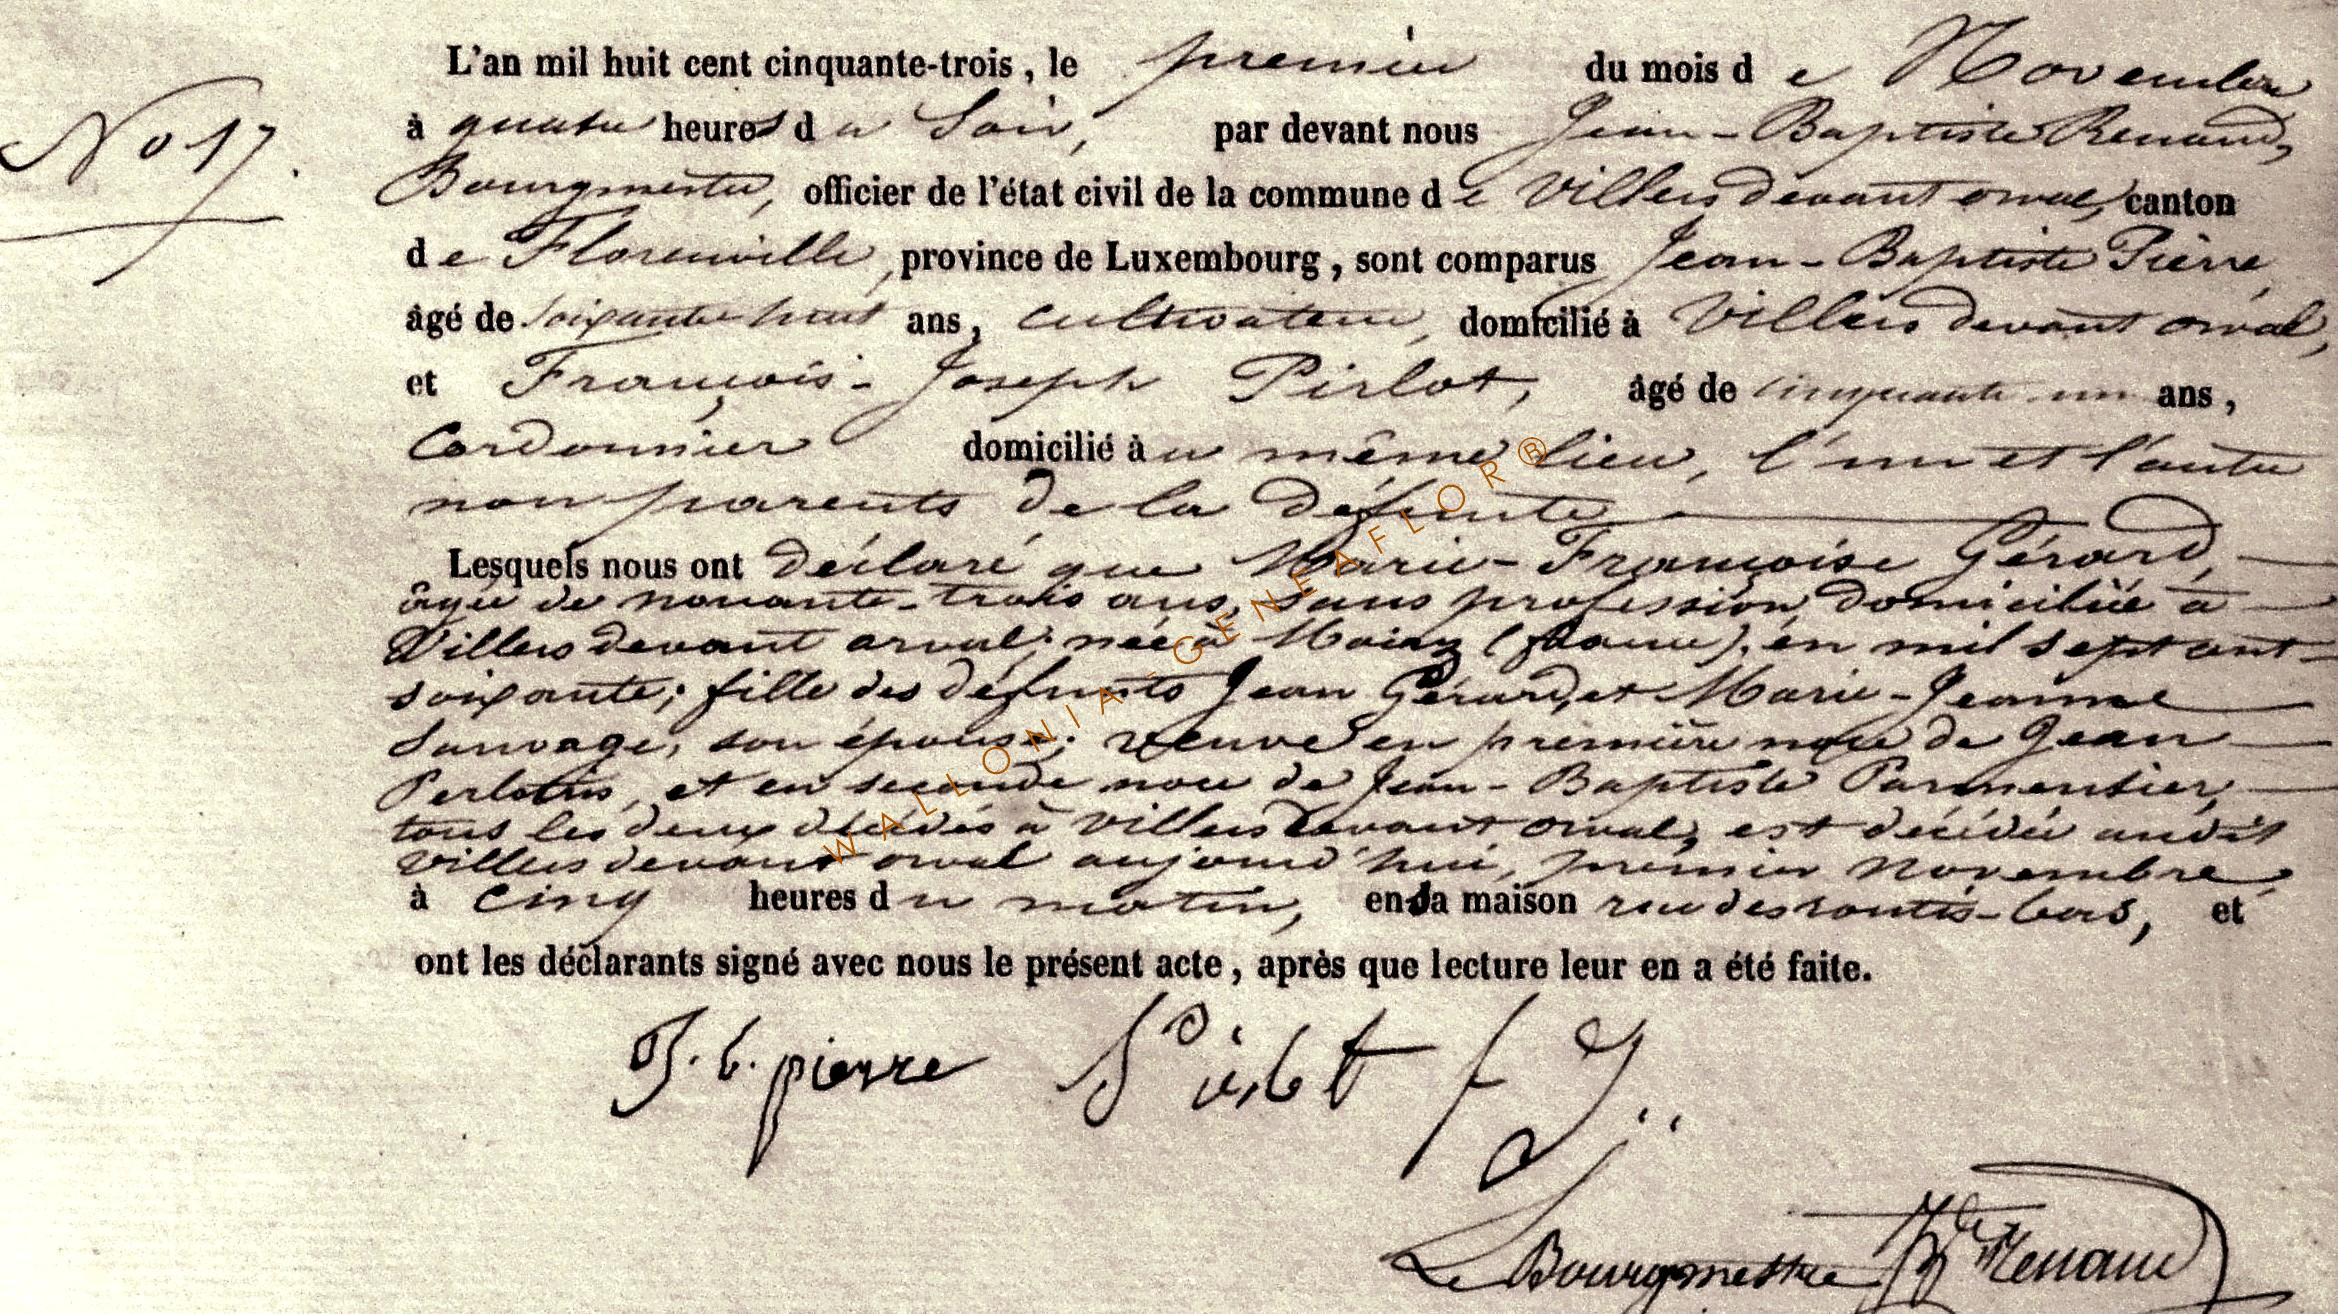 L'an mil huit cent cinquante-trois, le premier du mois de Novembre
No 17.
à quatre heures du Soir, par devant nous Jean-Baptiste Renaud,
Bourgmestre, officier de l'état civil de la commune de Villers devant orval, canton
de Florenville, province de Luxembourg, sont comparus Jean-Baptiste Pierre,
âgé de soixante huit ans, cultivateur, domicilié à Villers devant orval,
et François-Joseph Pirlot, âgé de cinquante un ans,
Cordonnier domicilié au même lieu, l'un et l'autre
non parents de la défunte
Lesquels nous ont déclaré que Marie-Françoise Gérard,
âgée de nonante-trois ans, sans profession, domiciliée à
Villers devant orval; née à (france), en mil sept cent
soixante; fille des défunts Jean Gérard, et Marie-Jeanne
Sauvage, son épouse; veuve en première noce de Jean
et en seconde noce de Jean-Baptiste Parmentier,
tous les deux décédés à Villers devant orval, est décédée audit
Villers devant orval aujourd'hui, premier Novembre,
à cinq heures du matin, en sa maison rue des et
ont les déclarants signé avec nous le présent acte, après que lecture leur en a été faite.
J. b. pierre Pirlot f J..
Le Bourgmestre JBte Renaud
WALLONIA-GENEAFLOR®